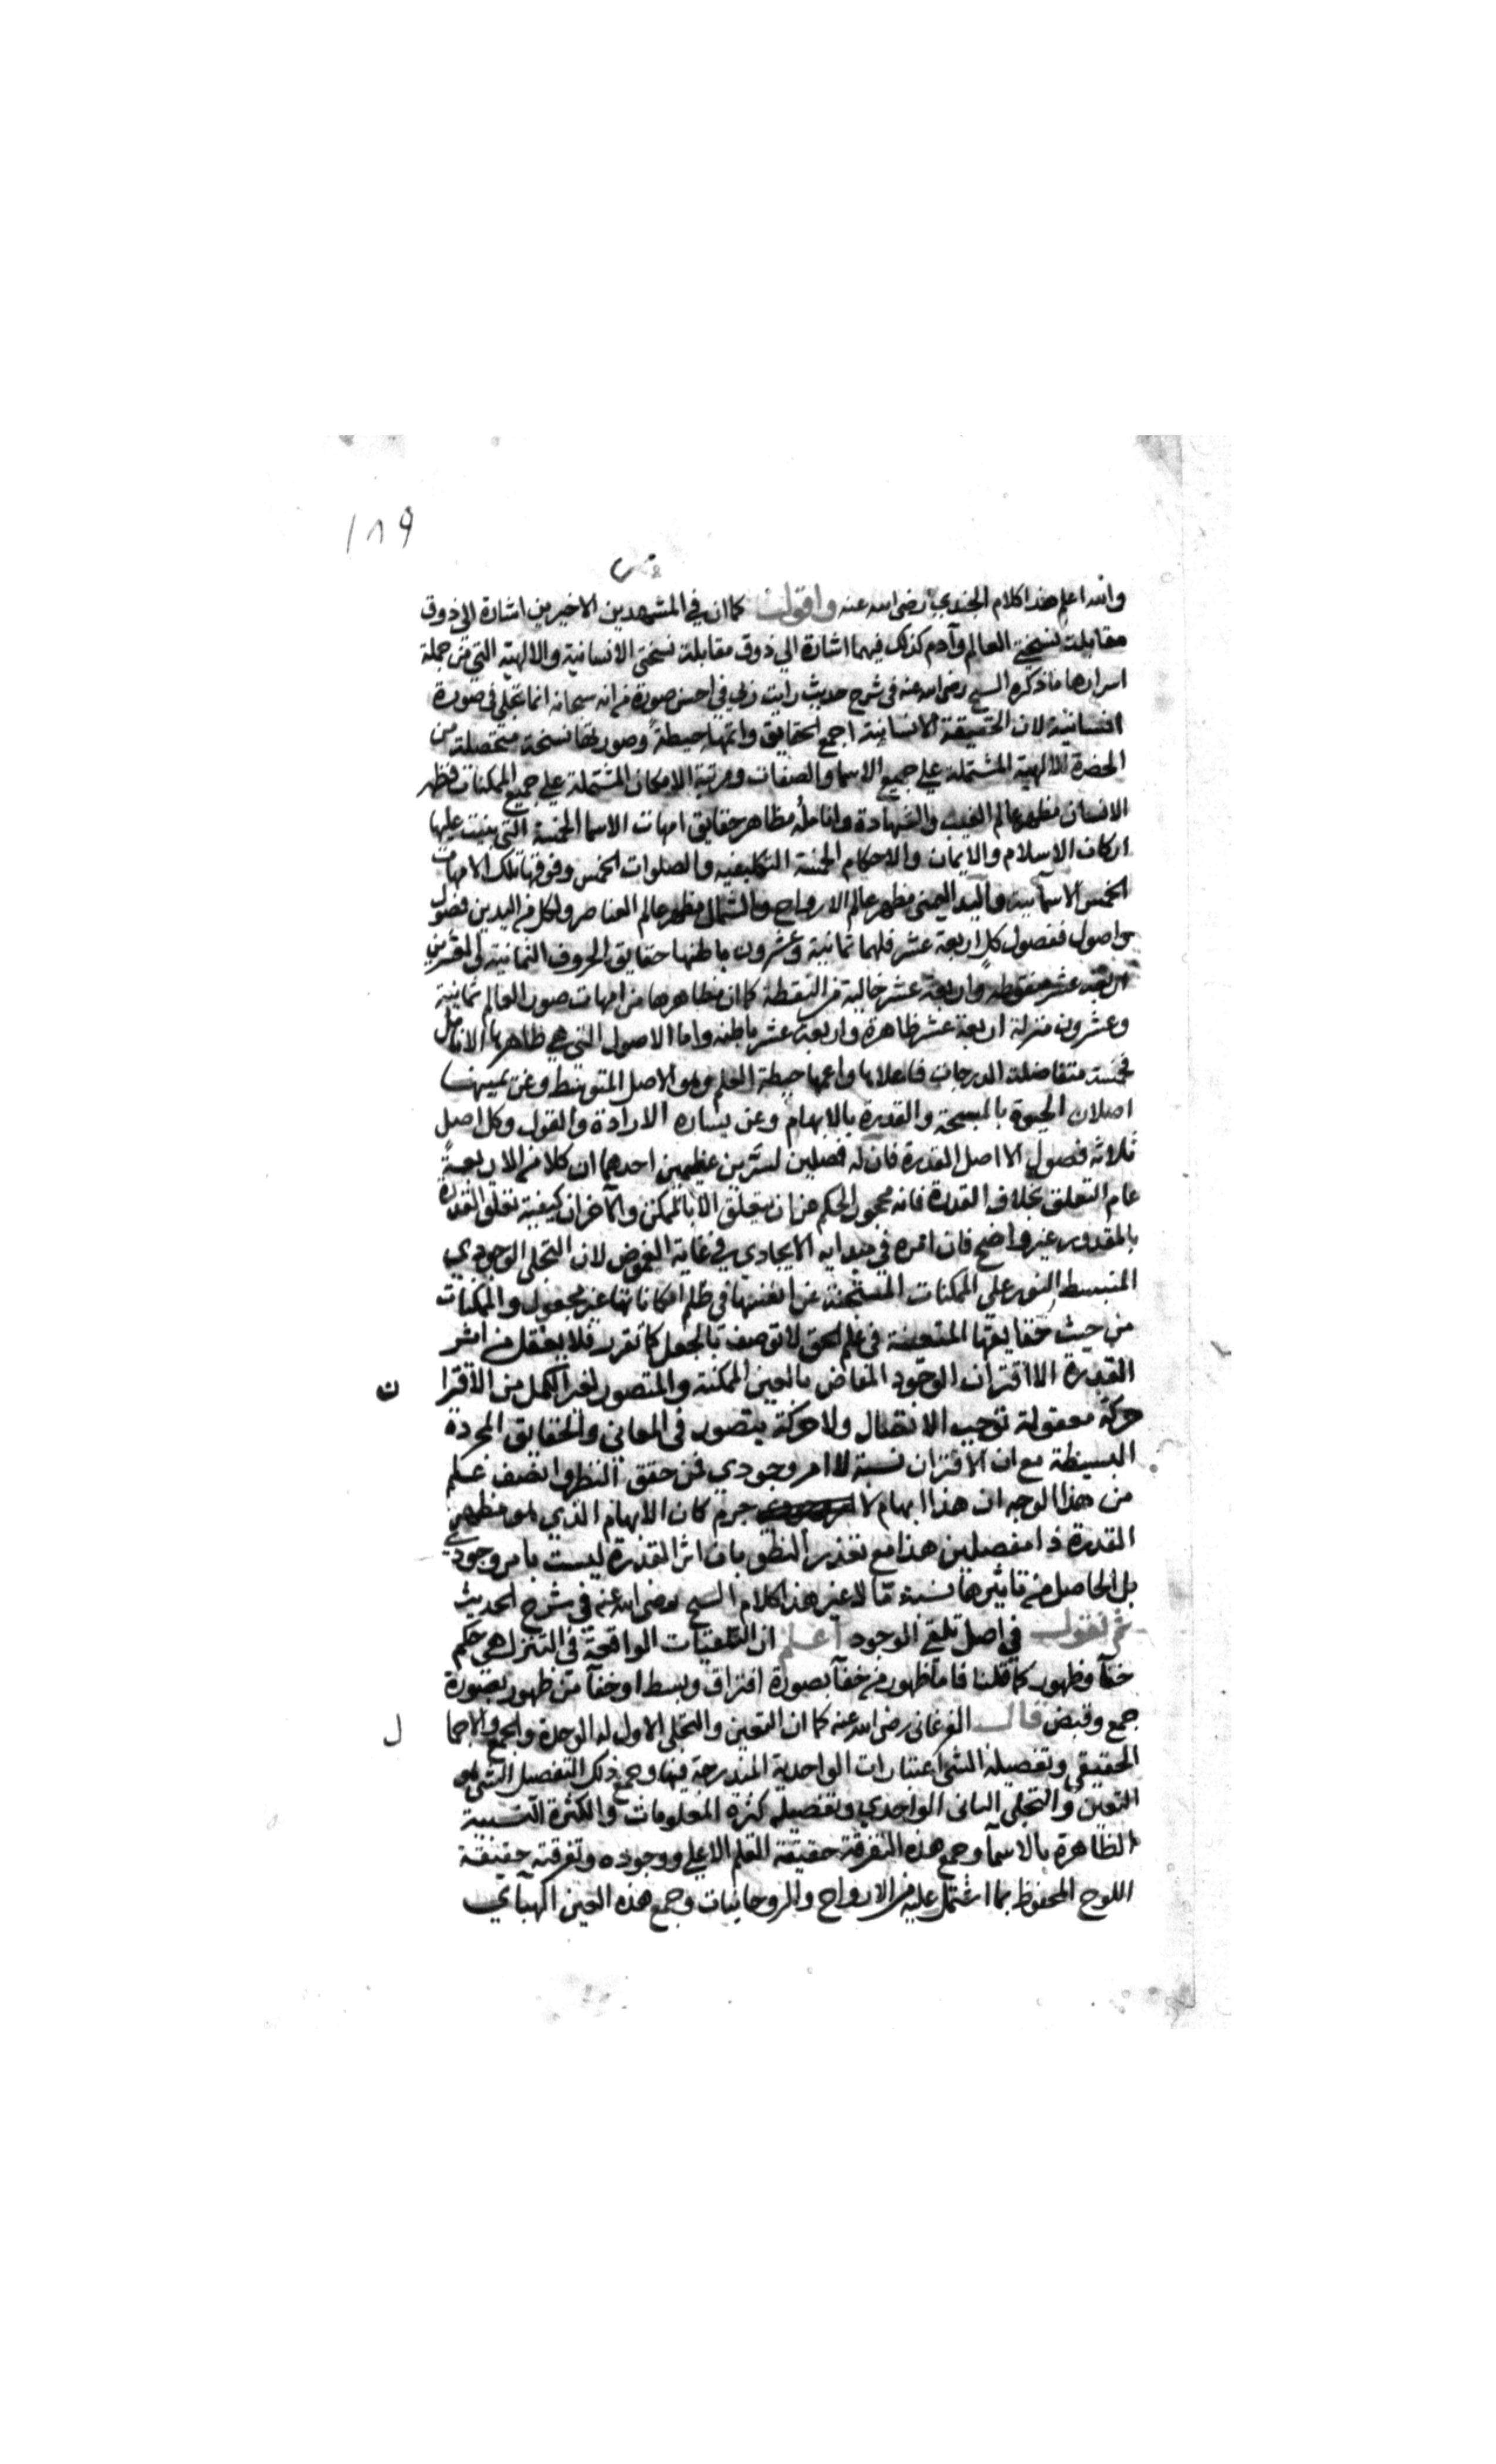 ١٨٩
والله اعلم هذا كلام الجندي رضى الله عنه واقول كما ان في المشهدين الاخيرين اشارة الي ذوق
مقابلة نسختي العالم وآدم كذلك فيهما اشارة الي ذوق مقابلة نسختي الانسانية والالهية التي من جملة
اسرارها ما ذكره الشيخ رضى الله عنه في شرح حديث رايت ربي في احسن صورة من انه سبحانه انما تجلي في صورة
انسانية لان الحقيقة الانسانية اجمع الحقايق واتمها حيطة وصورتها نسخة متحصلة من
الحضرة الالهية المشتملة علي جميع الاسما والصفات ومرتبة الامكان المشتملة علي جميع الممكنات فظهر
الانسان مظهر عالم الغيب والشهادة وانامله مظاهر حقايق امهات الاسما الخمسة التي بنيت عليها
اركان الاسلام والايمان والاحكام الخمسة التكليفيه والصلوات الخمس وفوقها تلك الامهات
الخمس الاسمآئية واليد اليمنى مظهر عالم الارواح والشمال مظهر عالم العناصر ولكل من اليدين فصول
واصول ففصول كل اربعة عشر فلهما ثمانية وعشرون باطنها حقايق الحروف الثمانية والعشرين
اربعة عشر منقوطة واربعة عشر خالية من النقطة كما ان مظاهرها من امهات صور العالم ثمانية
وعشرون منزلة اربعة عشر ظاهرة واربعة عشر باطنة واما الاصول التي هي ظاهرها الانامل
فخمسة متفاضلة الدرجات فاعلاها واعمها حيطة العلم وهو الاصل المتوسط وعن يمينها
اصلان الحيوة بالمسبحة والقدرة بالابهام وعن يساره الارادة والقول وكل اصل
ثلاثه فصول الا اصل القدرة فان له فصلين لسرين عظيمين احدهما ان كلا من الاربعة
عام التعلق بخلاف القدرة فانه محجور الحكم من ان يتعلق الا بالممكن والآخر ان كيفية تعلق القدرة
بالمقدور غير واضح فان امره في مبدايه الايجادي في غاية الغموض لان التجلى الوجودي
المنبسط النور على الممكنات المستجنة عن انفسها في ظلم امكاناتها غير مجعول والممكنات
من حيث حقايقها المتعينة في علم الحق لا توصف بالجعل كما تقرر فلا يعقل من اثر
القدرة الا اقتران الوجود المفاض بالعين الممكنة والمتصور لغير الكمل من الاقترا ن
حركة معقولة توجب الانتقال ولا حركة يتصور في المعاني والحقايق المجردة
البسيطة مع ان الاقتران نسبة لا امر وجودي فمن حقق النظر وانصف علم
من هذا الوجه ان هذا ابهام لا جرم كان الابهام الذي هو مظهر
القدرة ذا مفصلين هذا مع تعذر النطق بان اثر القدرة ليست بامر وجودي
بل الحاصل من تاثيرها نسبة ما لا غير هذا كلام الشيخ رضى الله عنه في شرح الحديث
ثم نقول في اصل تلقي الوجود اعلم ان التعينات الواقعة في التنزل هي حكم
خفآ وظهور كما قلنا فاما ظهور من خفآ بصورة افتراق وبسط او خفآ من ظهور بصورة
جمع وقبض قال الفرغاني رضى الله عنه كما ان التعين والتجلى الاول له الوحدة والجمع والاجما ل
الحقيقي وتفصيله النسبي اعتبارات الواحدية المندرجة فيها وجمع ذلك التفصيل النسبي هو
التعين والتجلي الثاني الواحدي وتفصيله كثرة المعلومات والكثرة النسبية
الظاهرة بالاسمآ وجمع هذه التفرقة حقيقة القلم الاعلي ووجوده وتفرقته حقيقة
اللوح المحفوظ بما اشتمل عليه من الارواح والروحانيات وجمع هذه العين الهبآي